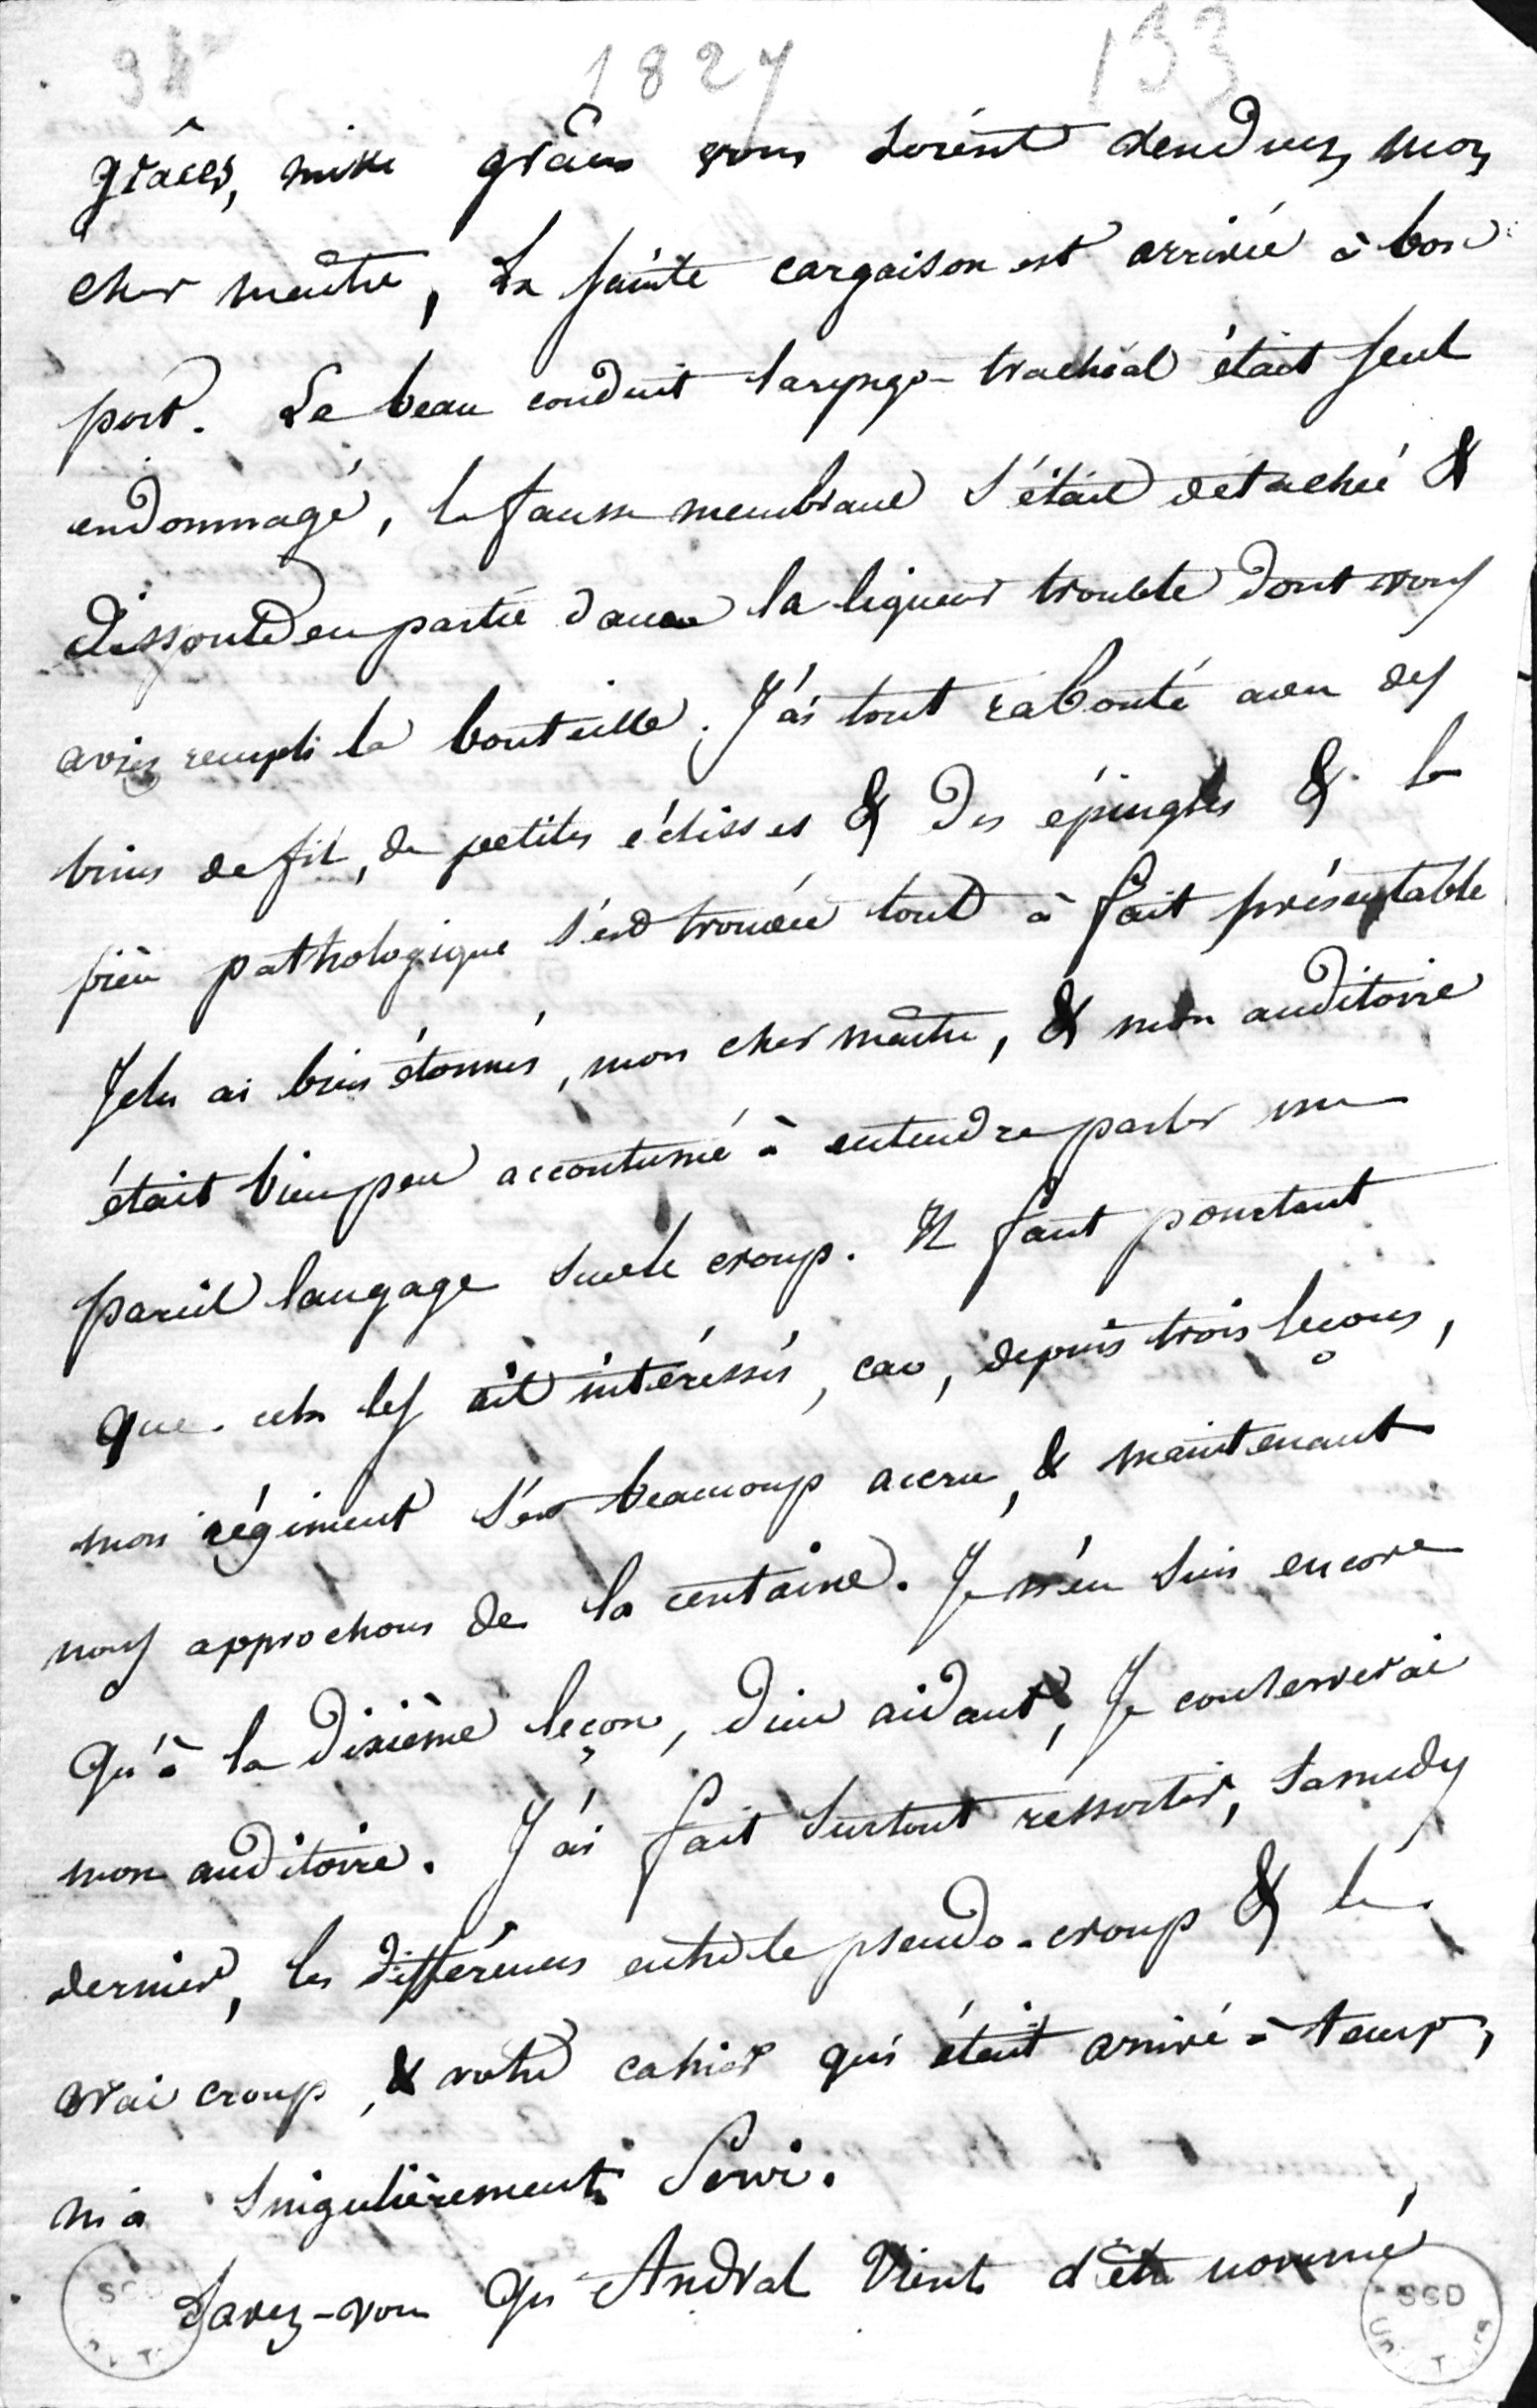 1827 133
grâces, mille grâces vous soient rendues, mon
cher maître, La sainte cargaison est arrivée à bon
port. Le beau conduit laryngo-trachéal était seul
endommagé, la fausse membrane s'était détachée &
dissoute en partie dans la liqueur trouble dont vous
aviez rempli la bouteille. J'ai tout rabouté avec des
brins de fil, de petites éclisses & des épingles & la
pièce pathologique s'est trouvée tout à fait présentable
Je les ai bien étonnés, mon cher maître, & mon auditoire
était bien peu accoutumé à entendre parler un
pareil langage sur le croup. Il faut pourtant
que cela les ait intéressés, car, depuis trois leçons,
mon régiment s'est beaucoup accru, & maintenant
nous approchons de la centaine. Je n'en suis encore
qu'à la dixième leçon, dieu aidant, Je conserverai
mon auditoire. J'ai fait surtout ressortir, samedy
dernier, les différences entre le pseudo-croup & le
vrai croup, & votre cahier qui était arrivé à temps,
m'a singulièrement servi.
Savez-vous qu'Andral vient d'être nommé
SCD